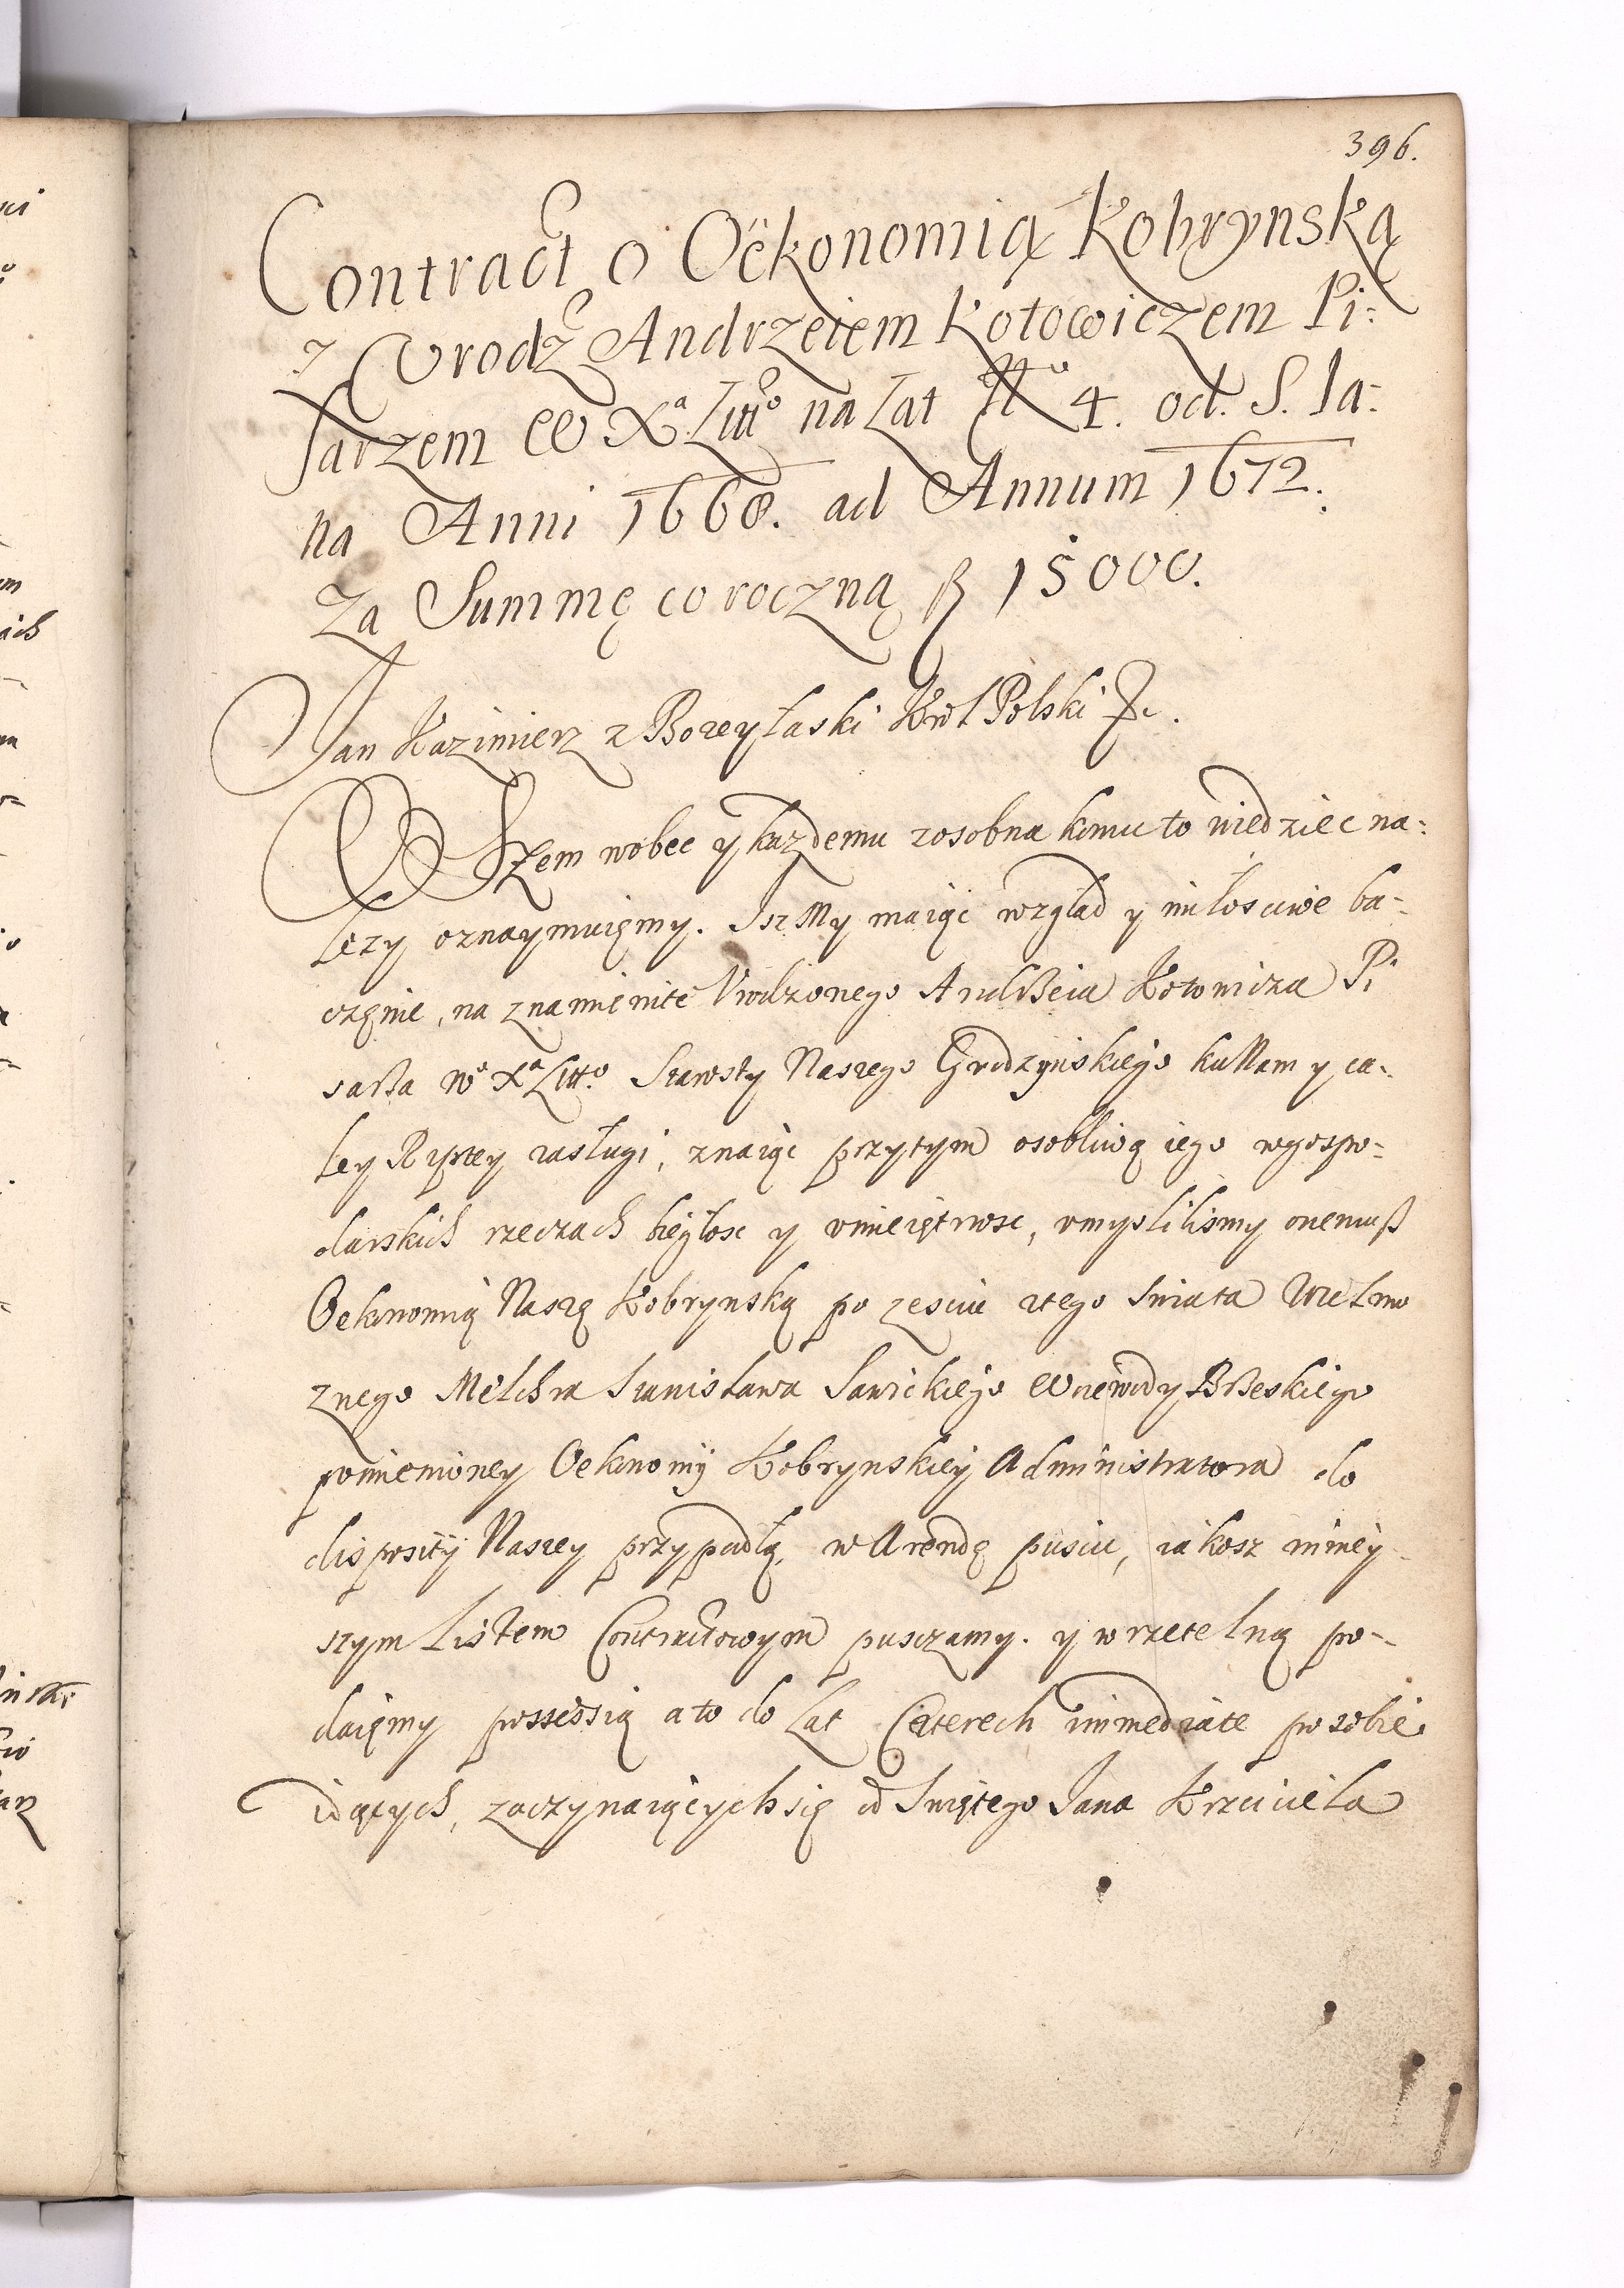 396.
Contract o Oekonomią Kobrynską
z Vrodz Andrzeiem Kotowiczem Pi:
sarzem W Xa Litto na Lat No 4. od. S. Ja:
na Anni 1668. ad Annum 1672.
Za Summę coroczną fl 15000.
Jan Kazimierz z Bozey Łaski Krol Polski &c.
WSzem wobec y każdemu zosobna komu to wiedziec na:
lezy oznaymuięmy. Isz My maiąc wzgląd y miłosciwe ba-
częnie, na znamięnite Vrodzonego Andrzeia Kotowicza Pi
sarza Wo Xa Litto. Starosty Naszego Grodzynskiego ku Nam y ca-
ley Rzptey zasługi, znaiąc przytym osobliwą iego wgospo-
darskich rzeczach biegłosc y vmieiętnosc, vmyslilismy onemuß
Oekonomią Naszą Kobrynską po zesciu ztego swiata Wielmo
znego Melchra Stanisława Sawickiego Woiewody Brzeskiego
pomienioney Oekonomij Kobrynskiey Administratora do
dispositij Naszey przypadłą, w Arendę puscic, iakosz ninieÿ-
szym Listem Contractowym pusczamy. y w rzetelną po-
daięmy possessią a to do Lat Czterech immediate po sobie
idących, zaczynaiących się od Swiętego Jana Krzciciela